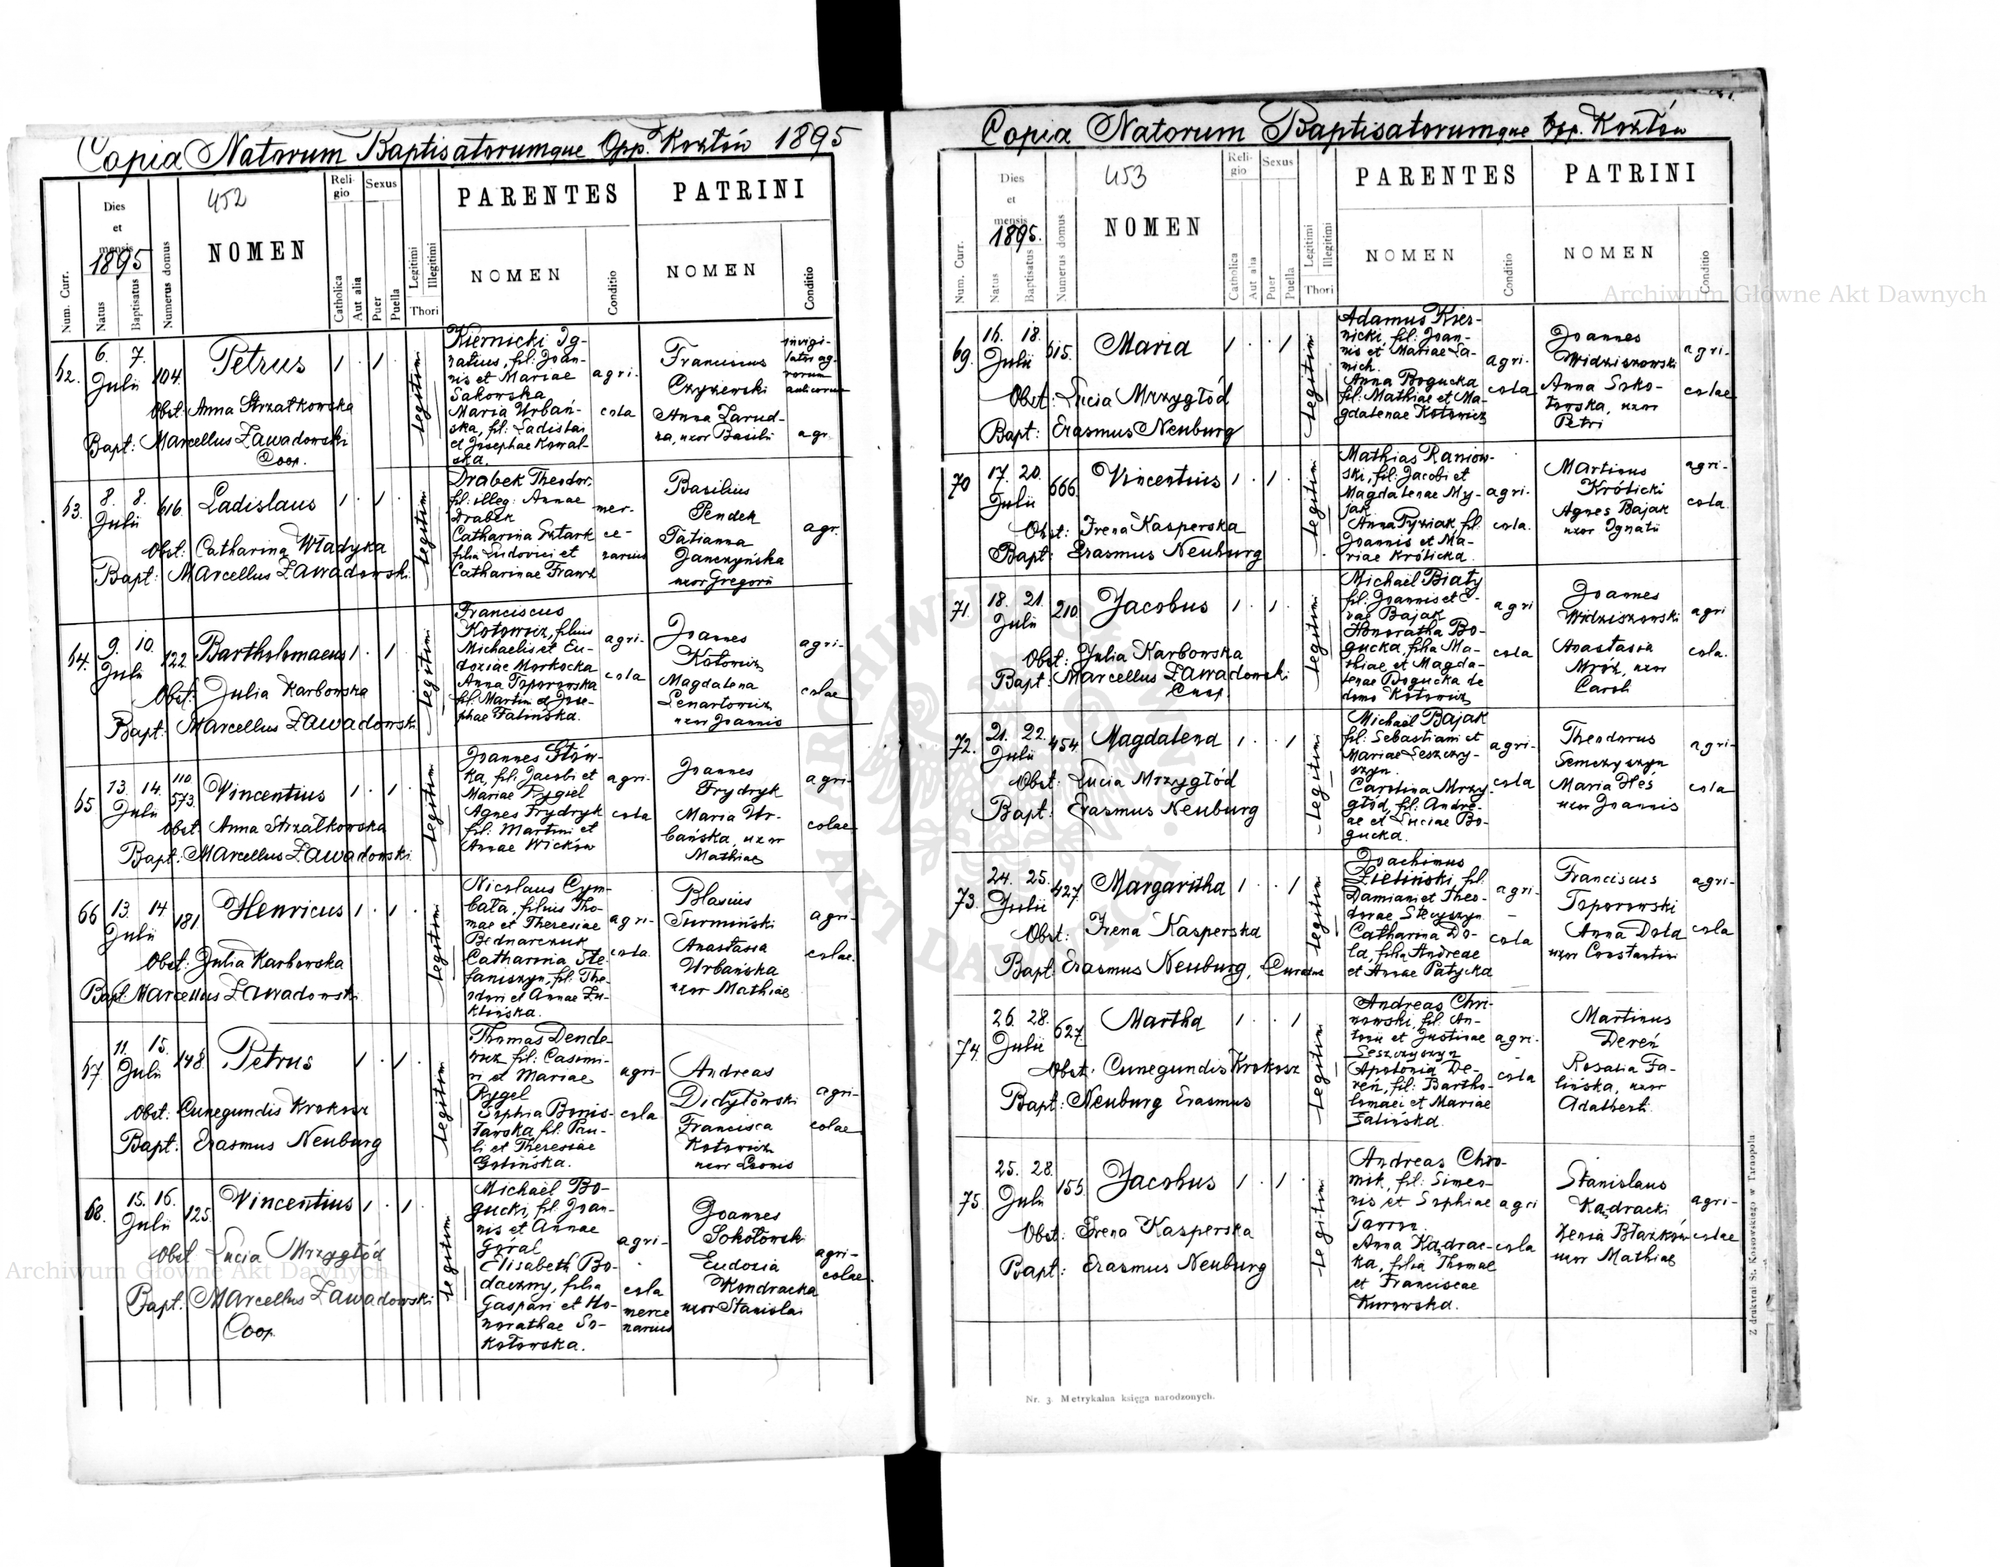 Copia Natorum Baptisatorumque Opp. Kozłów 1895
452
Num. Curr.
Dies et mensis
1895
Natus
Baptisatus
Numerus domus
NOMEN
Religio
Catholica
Aut alia
Sexus
Puer
Puella
Legitimi
Illegitimi
Thori
PARENTES
NOMEN
Conditio
PATRINI
NOMEN
Conditio
62.
6. 7.
Julii
104.
Petrus
1 . 1 .
Obst: Anna Strzałkowska
Bapt: Marcellus Zawadowski
Coop.
legitimi
Kiernicki Ig-
natius, fil: Joan-
nis et Mariae
Sakowska
Maria Urbań-
ska, fil: Ladislai
et Josephae Kowal-
ska.
agri-
cola
Franciscus
Czyżewski
Anna Zarud-
na, uxor Basilii
invigi-
lator ag-
rorum
auticorum
agr.
63.
8. 8.
Julii
616
Ladislaus
1 . 1 .
Obst: Catharina Władyka
Bapt: Marcellus Zawadowski
legitimi
Drabek Theodor,
fil: illeg: Annae
Drabek
Catharina Sztark
filia Ludovici et
Catharinae Franz
mer-
ce-
narius
Basilius
Pendek
Tatianna
Janczyńska
uxor Gregorii
agr.
64.
9. 10.
Julii
122
Bartholomaeus
1 . 1 .
Obst: Julia Karbowska
Bapt: Marcellus Zawadowski
legitimi
Franciscus
Kotowicz, filius
Michaelis et Eu-
doxiae Morkocka
Anna Toporowska
fil: Martini et Jose-
phae Falińska.
agri-
cola
Joannes
Kotowicz
Magdalena
Lenartowicz
uxor Joannis
agri-
colae
65
13. 14.
Julii
110
573.
Vincentius
1 . 1 .
Obst: Anna Strzałkowska
Bapt: Marcellus Zawadowski
legitimi
Joannes Głów-
ka, fil: Jacobi et
Mariae Pygiel
Agnes Frydryk
fil: Martini et
Annae Wicków
agri-
cola
Joannes
Frydryk
Maria Ur-
bańska, uxor
Mathiae
agri-
colae
66
13. 14
Julii
181.
Henricus
1 . 1 .
Obst: Julia Karbowska
Bapt: Marcellus Zawadowski
legitimi
Nicolaus Cym-
bała, filius Tho-
mae et Theresiae
Bednarczuk
Catharina Ste-
faniszyn, fil: The-
odori et Annae Zu-
klińska.
agri-
cola.
Blasius
Surmiński
Anastasia
Urbańska
uxor Mathiae
agri-
colae.
67
11. 15.
Julii
148.
Petrus
1 . 1 .
Obst: Cunegundis Krokosz
Bapt: Erasmus Neuburg
legitimi
Thomas Dende-
wicz, fil: Casimi-
ri et Mariae
Pygel
Sophia Bonis-
ławska, fil: Pau-
li et Theresiae
Golińska.
agri-
cola
Andreas
Didyłowski
Francisca
Kotowicz
uxor Leonis
agri-
colae
68.
15. 16.
Julii
125.
Vincentius
1 . 1 .
Obst Lucia Mrzygłód
Bapt. Marcellus Zawadowski
Coop.
legitimi
Michaël Bo-
gucki, fil: Joan-
nis et Annae
Góral
Elisabeth Bo-
daczny, filia
Gaspari et Ho-
norathae So-
kołowska.
agri-
cola
merce
narius
Joannes
Sokołowski
Eudoxia
Kondracka
uxor Stanislai
agri-
colae.
Copia Natorum Baptisatorumque Opp. Kozłów
453
Num. Curr.
Dies et mensis
1895.
Natus
Baptisatus
Numerus domus
NOMEN
Religio
Catholica
Aut alia
Sexus
Puer
Puella
Legitimi
Illegitimi
Thori
PARENTES
NOMEN
Conditio
PATRINI
NOMEN
Conditio
69.
16. 18.
Julii
615.
Maria
1 . . 1
Obst: Lucia Mrzygłód
Bapt: Erasmus Neuburg
legitimi
Adamus Kier-
nicki, fil: Joan-
nis et Mariae Sa-
mich.
Anna Bogucka
fil: Mathiae et Ma-
gdalenae Kotowicz
agri-
cola
Joannes
Widziszowski
Anna Soko-
łowska, uxor
Petri
agri-
colae
70
17. 20.
Julii
666.
Vincentius
1 . 1 .
Obst: Irena Kasperska
Bapt: Erasmus Neuburg
legitimi
Mathias Raniow-
ski, fil: Jacobi et
Magdalenae My-
jak
Anna Pyziak, fil:
Joannis et Ma-
riae Królicka.
agri-
cola.
Martinus
Królicki
Agnes Bajak
uxor Ignatii
agri-
cola.
71.
18. 21.
Julii
210.
Jacobus
1 . 1 .
Obst: Julia Karbowska
Bapt: Marcellus Zawadowski
Coop.
legitimi
Michaël Biały
fil: Joannis et E-
vae Bajak
Honoratha Bo-
gucka, filia Ma-
thiae et Magda-
lenae Bogucka de
domo Kotowicz
agri
cola
Joannes
Widziszowski
Anastasia
Mróz, uxor
Caroli
agri
cola.
72.
21. 22.
Julii
454
Magdalena
1 . . 1
Obst: Lucia Mrzygłód
Bapt: Erasmus Neuburg
legitimi
Michaël Bajak
fil: Sebastiani et
Mariae Leszczy-
szyn.
Carolina Mrzy-
głód, fil: Andre-
ae et Luciae Bo-
gucka.
agri-
cola
Theodorus
Semczyszyn
Maria Heś
uxor Joannis
agri-
cola
73.
24. 25.
Julii
427
Margaritha
1 . . 1
Obst: Irena Kasperska
Bapt: Erasmus Neuburg, Curatus
legitimi
Joachimus
Zieliński fil:
Damiani et Theo-
dorae Stecyszyn
Catharina Do-
la, filia Andreae
et Annae Patycka
agri-
cola
Franciscus
Toporowski
Anna Dola
uxor Constantini
agri-
cola
74.
26. 28.
Julii
627.
Martha
1 . . 1
Obst: Cunegundis Krokosz
Bapt: Neuburg Erasmus
legitimi
Andreas Chri-
nowski, fil: An-
tonii et Justinae
Leszczyszyn
Apolonia De-
reń, fil: Bartho-
lomaei et Mariae
Falińska.
agri-
cola
Martinus
Dereń
Rosalia Fa-
lińska, uxor
Adalberti.
75.
25. 28.
Julii
155.
Jacobus
1 . 1 .
Obst: Irena Kasperska
Bapt: Erasmus Neuburg
legitimi
Andreas Chro-
mik, fil: Simeo-
nis et Sophiae
Anna Kądrac-
ka, filia Thomae
et Franciscae
Kurowska.
agri
cola
Stanislaus
Kądracki
Xenia Błażków
uxor Mathiae
agri-
colae
Nr. 3. Metrykalna księga narodzonych.
Z drukarni St. Kossowskiego w Tarnopolu.
Archiwum Główne Akt Dawnych
Archiwum Główne Akt Dawnych
ARCHIWUM GŁÓWNE AKT DAWNYCH